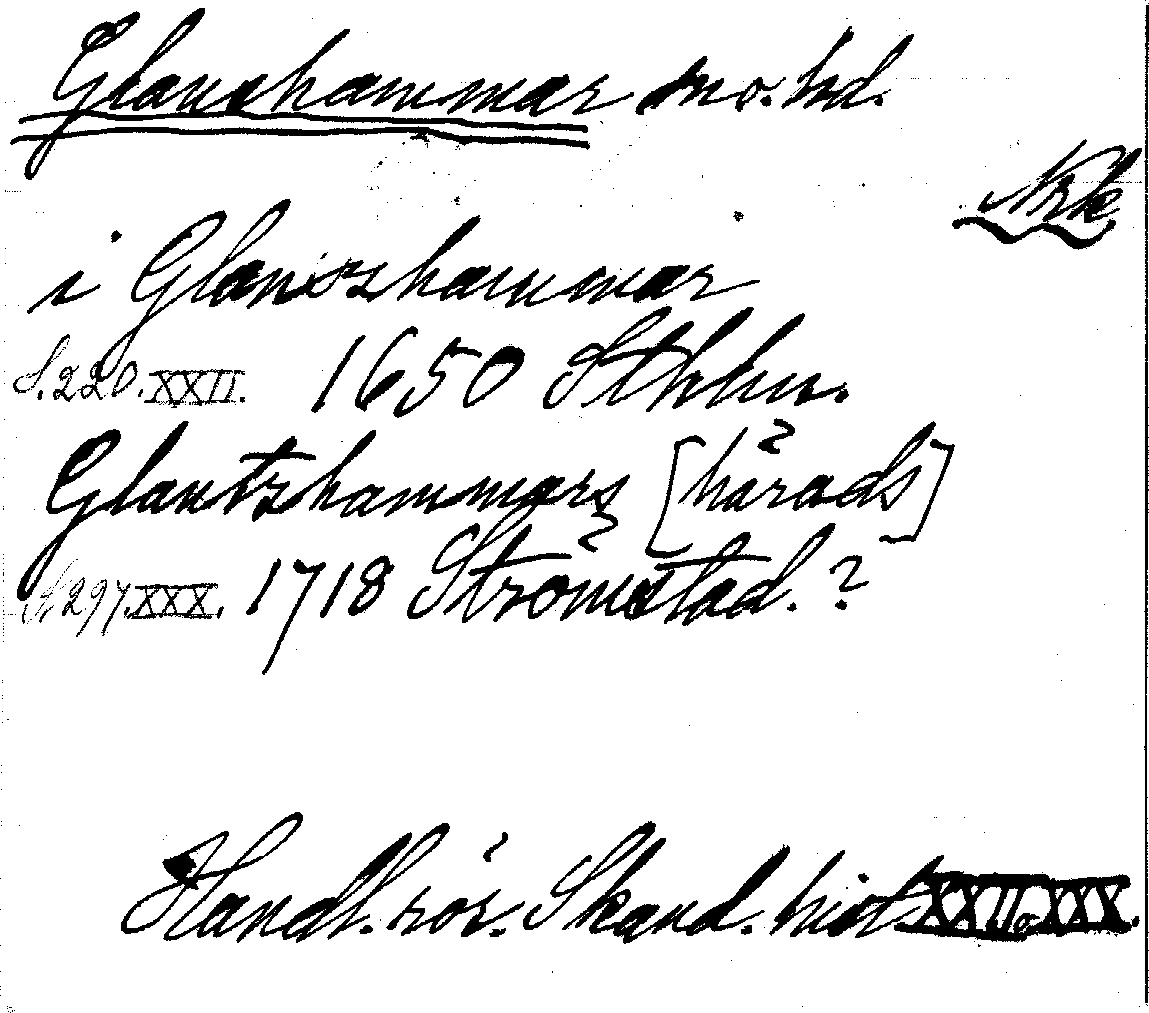 Glanshammar sn o. hd.
Nrk
i Glanszhammar
S. 220. XXII. 1650 Sthlm.
Glantzhammars [härads]
S. 297. XXX. 1718 Strömstad. ?
Handl. rör. Skand. hist. XXII o XXX.